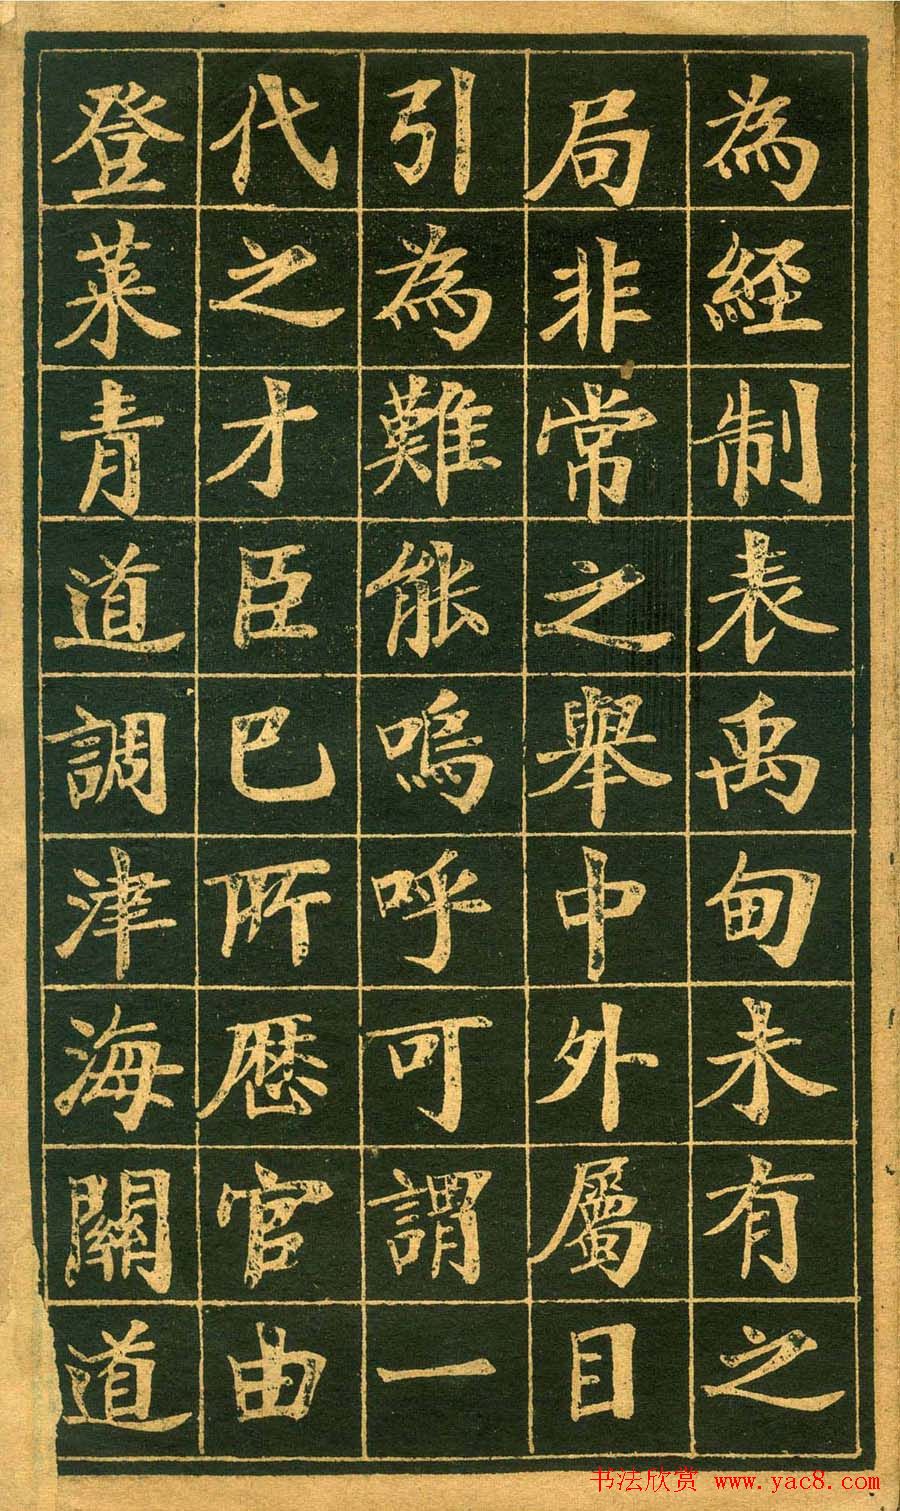 為經制表禹甸未有之
局非常之舉中外屬目
引為難能嗚呼可謂一
代之才臣已所歷官由
登萊青道調津海關道
书法欣赏 www.yac8.com